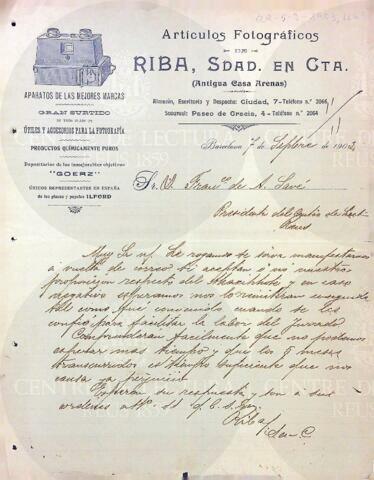 Artículos Fotográficos
DE
RIBA, SDAD. EN CTA.
(Antigua Casa Arenas)
Almacén, Escritorio y Despacho: Ciudad, 7-Teléfono n.º 2066
Sucursal: Paseo de Gracia, 4-Teléfono n.º 2064
APARATOS DE LAS MEJORES MARCAS
GRAN SURTIDO
EN TODA CLASE DE
ÚTILES Y ACCESORIOS PARA LA FOTOGRAFÍA
PRODUCTOS QUÍMICAMENTE PUROS
Depositarios de los inmejorables objetivos
"GOERZ"
ÚNICOS REPRESENTANTES EN ESPAÑA
de las placas y papeles ILFORD
Barcelona 7 de Septbre de 190
Sr. D. Franco de A.
Presidente del Centro de Lectura
Reus
Muy Sr. n/. Le rogamos se sirva manifestarnos
á vuelta de correo si aceptan ó no nuestra
proposicion respecto del y en caso
negativo esperamos nos lo remitiran enseguida
tal como fué convenido cuando se les
confió para facilitar la labor del Jurado.
Comprenderan facilmente que no podemos
esperar mas tiempo y que los 5 meses
transcurridos es tiempo suficiente que nos
causa ya perjuicio.
Esperan su respuesta y son á sus
ordenes atto. SS. q. b. s. m.
Riba
en C
CENTRE DE LECTURA
REUS 1859